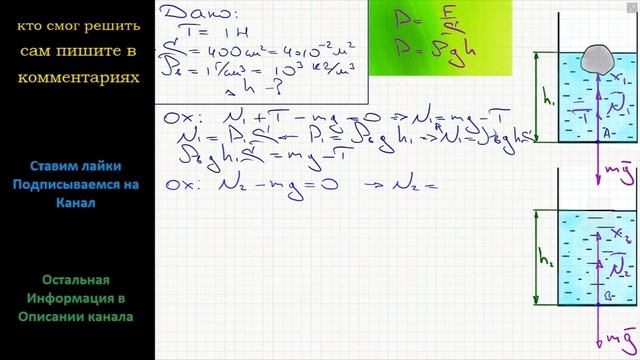 кто смог решить
сам пишите в
комментариях
Ставим лайки
Подписываемся на
Канал
Остальная
Информация в
Описании канала
Дано:
T = 1 Н
S = 400 см² = 4·10⁻² м²
ρв = 1 г/см³ = 10³ кг/м³
Δh - ?
P = F/S
P = ρgh
OX: N₁ + T - mg = 0 ⇒ N₁ = mg - T
N₁ = P₁S ← P₁ = ρв g h₁ ⇒ N₁ = ρв g h₁ S
ρв g h₁ S = mg - T
OX: N₂ - mg = 0 → N₂ =
h₁
x₁
T
N₁
A
mg
h₂
x₂
N₂
B
mg